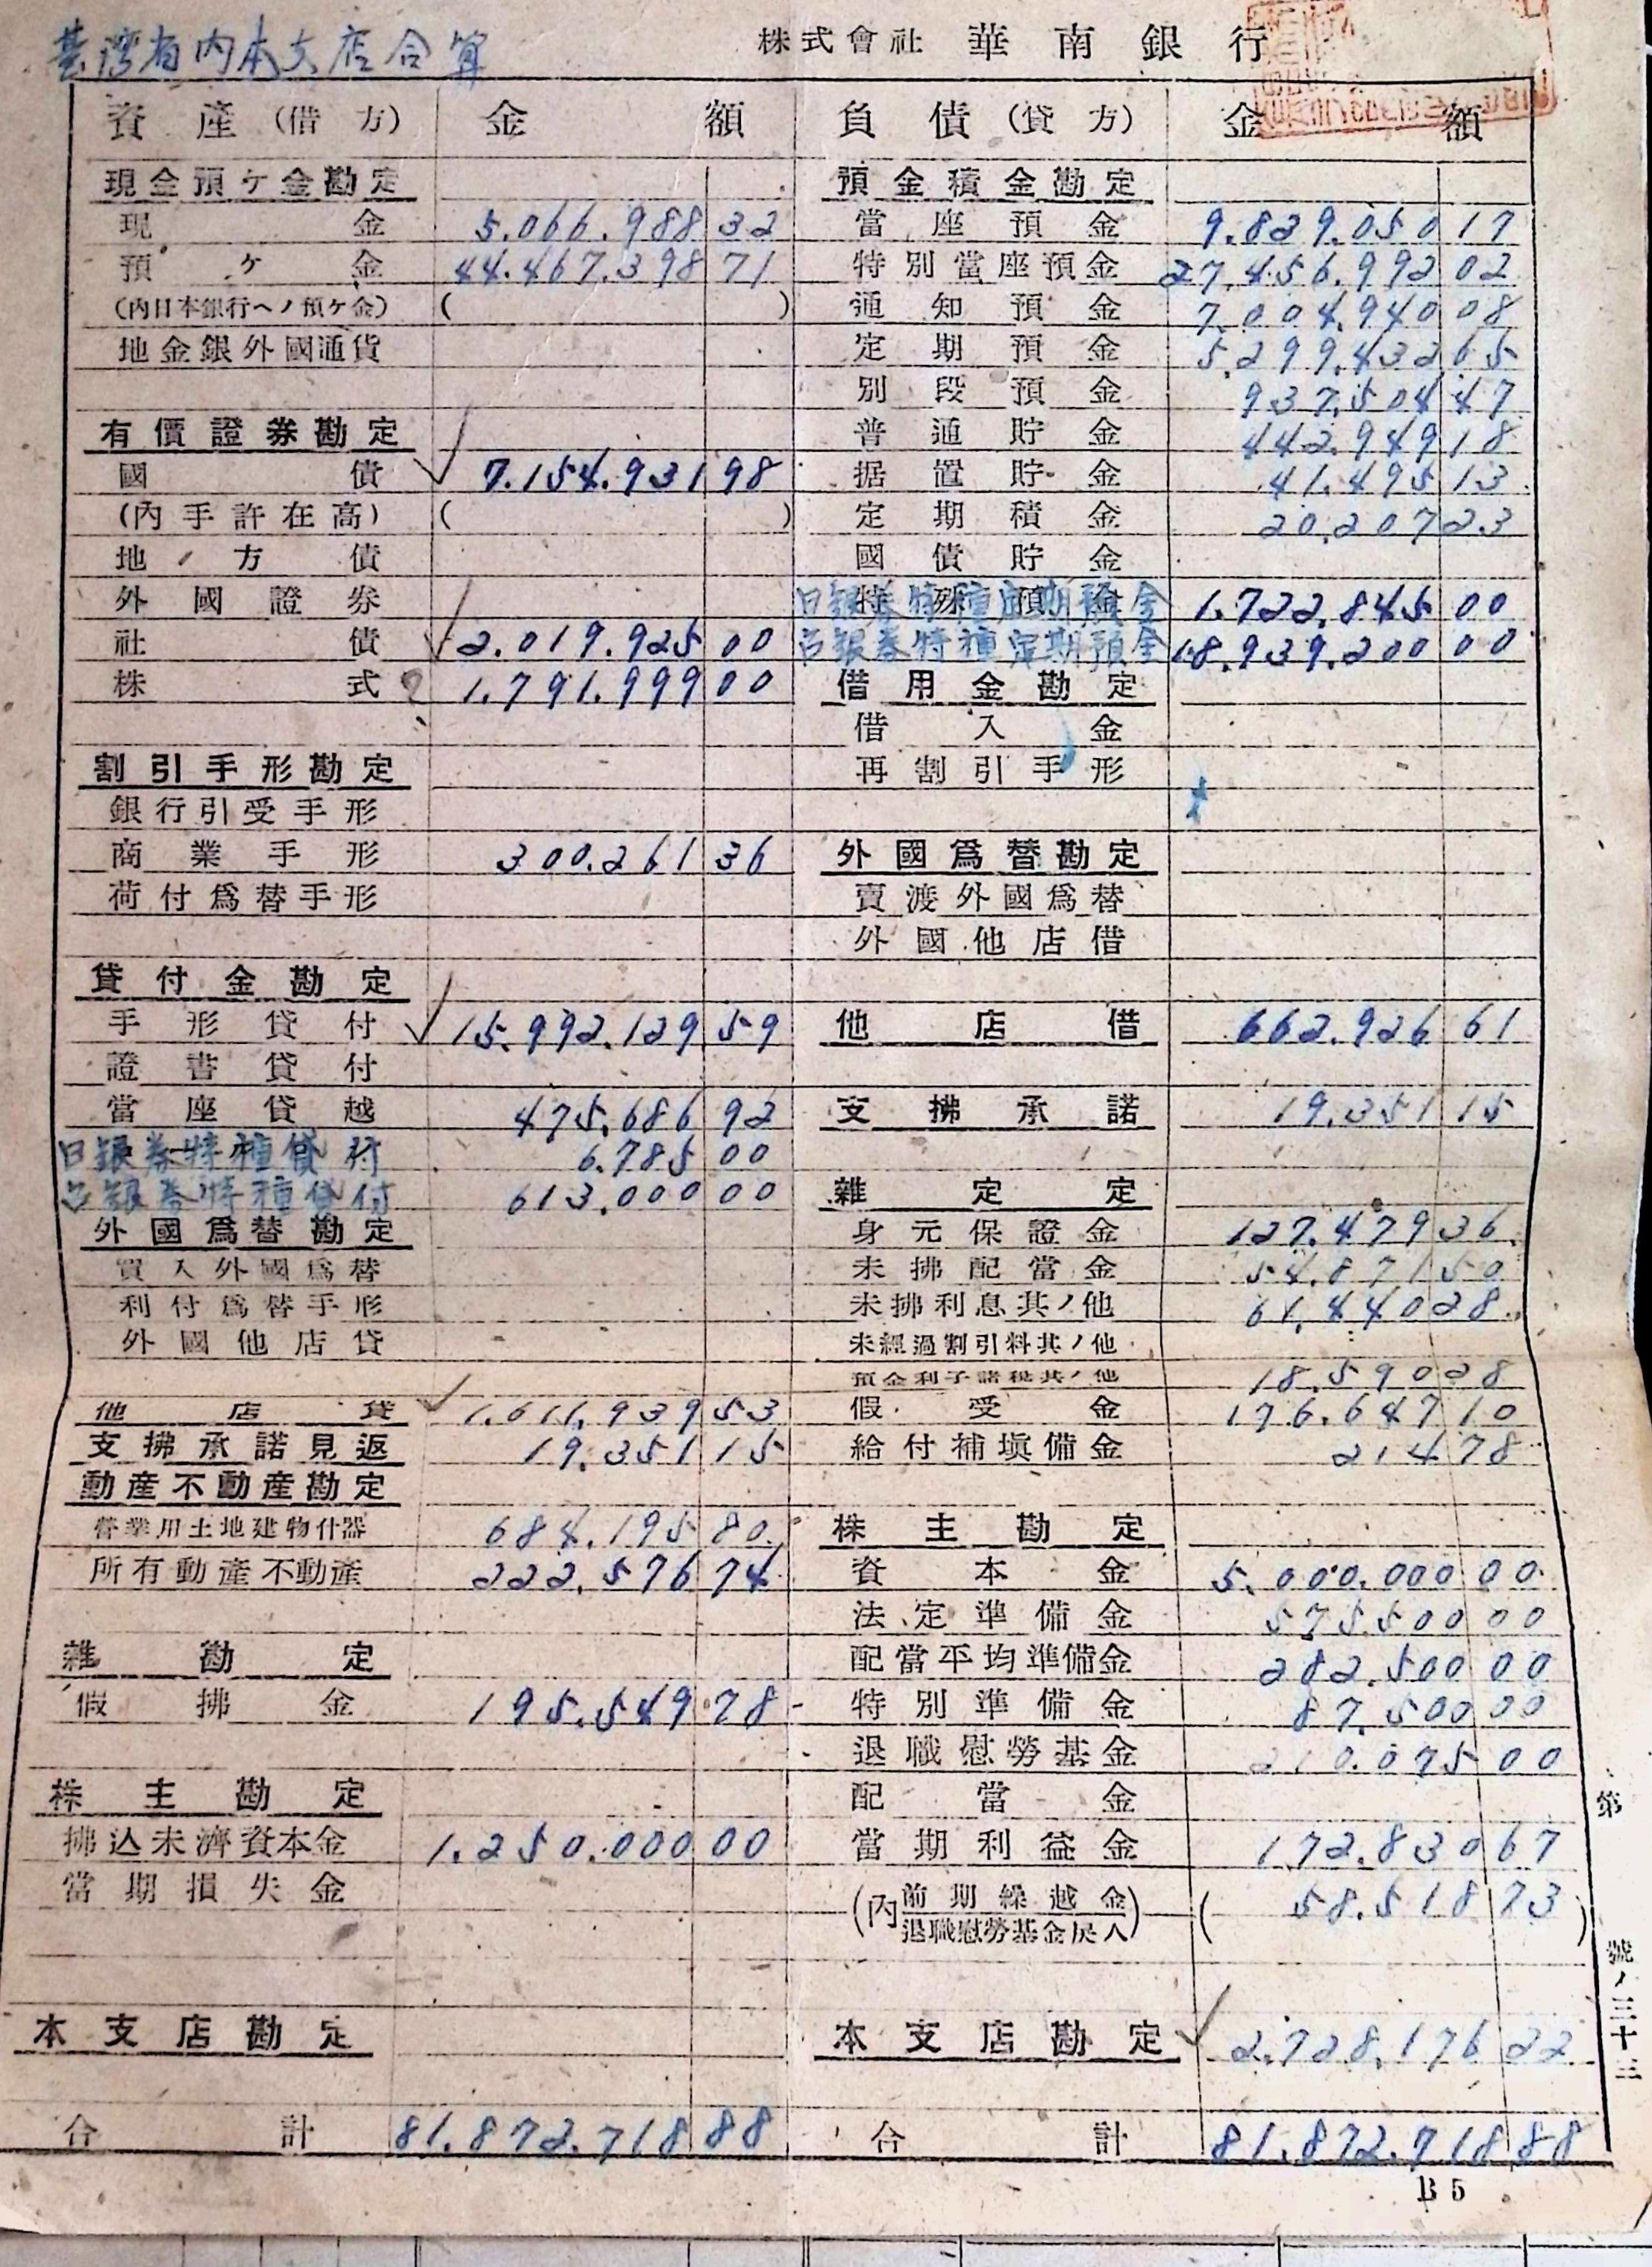 臺灣省内本支店合算
株式會社 華南銀行
資産(借方) 金額 負債(貸方) 金額
現金預ケ金勘定 預金積金勘定
現金 5.066.988 32 當座預金 9.829.050 17
預ケ金 44.467.398 71 特別當座預金 27.456.992 02
(内日本銀行ヘノ預ケ金) ( ) 通知預金 7.004.940 08
地金銀外國通貨 定期預金 5.299.432 65
別段預金 937.504 47
有價證券勘定 普通貯金 442.949 18
國債 7.154.931 98 据置貯金 41.495 13
(内手許在高) ( ) 定期積金 20.207 23
地方債 國債貯金
外國證券 特殊預金 日銀券特種定期預金 1.722.845 00
社債 2.019.925 00 台銀券特種定期預金 18.939.200 00
株式 1.791.999 00 借用金勘定
借入金
割引手形勘定 再割引手形
銀行引受手形
商業手形 300.261 36 外國爲替勘定
荷付爲替手形 賣渡外國爲替
外國他店借
貸付金勘定
手形貸付 15.992.129 59 他店借 662.926 61
證書貸付
當座貸越 475.686 92 支拂承諾 19.351 15
日銀券特種貸付 6.785 00
台銀券特種貸付 613.000 00 雜定定
外國爲替勘定 身元保證金 127.479 36
買入外國爲替 未拂配當金 54.871 50
利付爲替手形 未拂利息其ノ他 61.440 28
外國他店貸 未經過割引料其ノ他
預金利子諸税其ノ他 18.590 28
他店貸 1.611.939 53 假受金 176.647 10
支拂承諾見返 19.351 15 給付補塡備金 214 78
動産不動産勘定
營業用土地建物什器 684.195 80 株主勘定
所有動産不動産 222.576 74 資本金 5.000.000 00
法定準備金 575.500 00
雜勘定 配當平均準備金 282.500 00
假拂金 195.549 78 特別準備金 87.500 00
退職慰勞基金 210.075 00
株主勘定 配當金
拂込未濟資本金 1.250.000 00 當期利益金 172.830 67
當期損失金 (内 前期繰越金 退職慰勞基金戻入) ( 58.518 73 )
本支店勘定 本支店勘定 2.728.176 22
合計 81.872.718 88 合計 81.872.718 88
第 號ノ三十三
B5